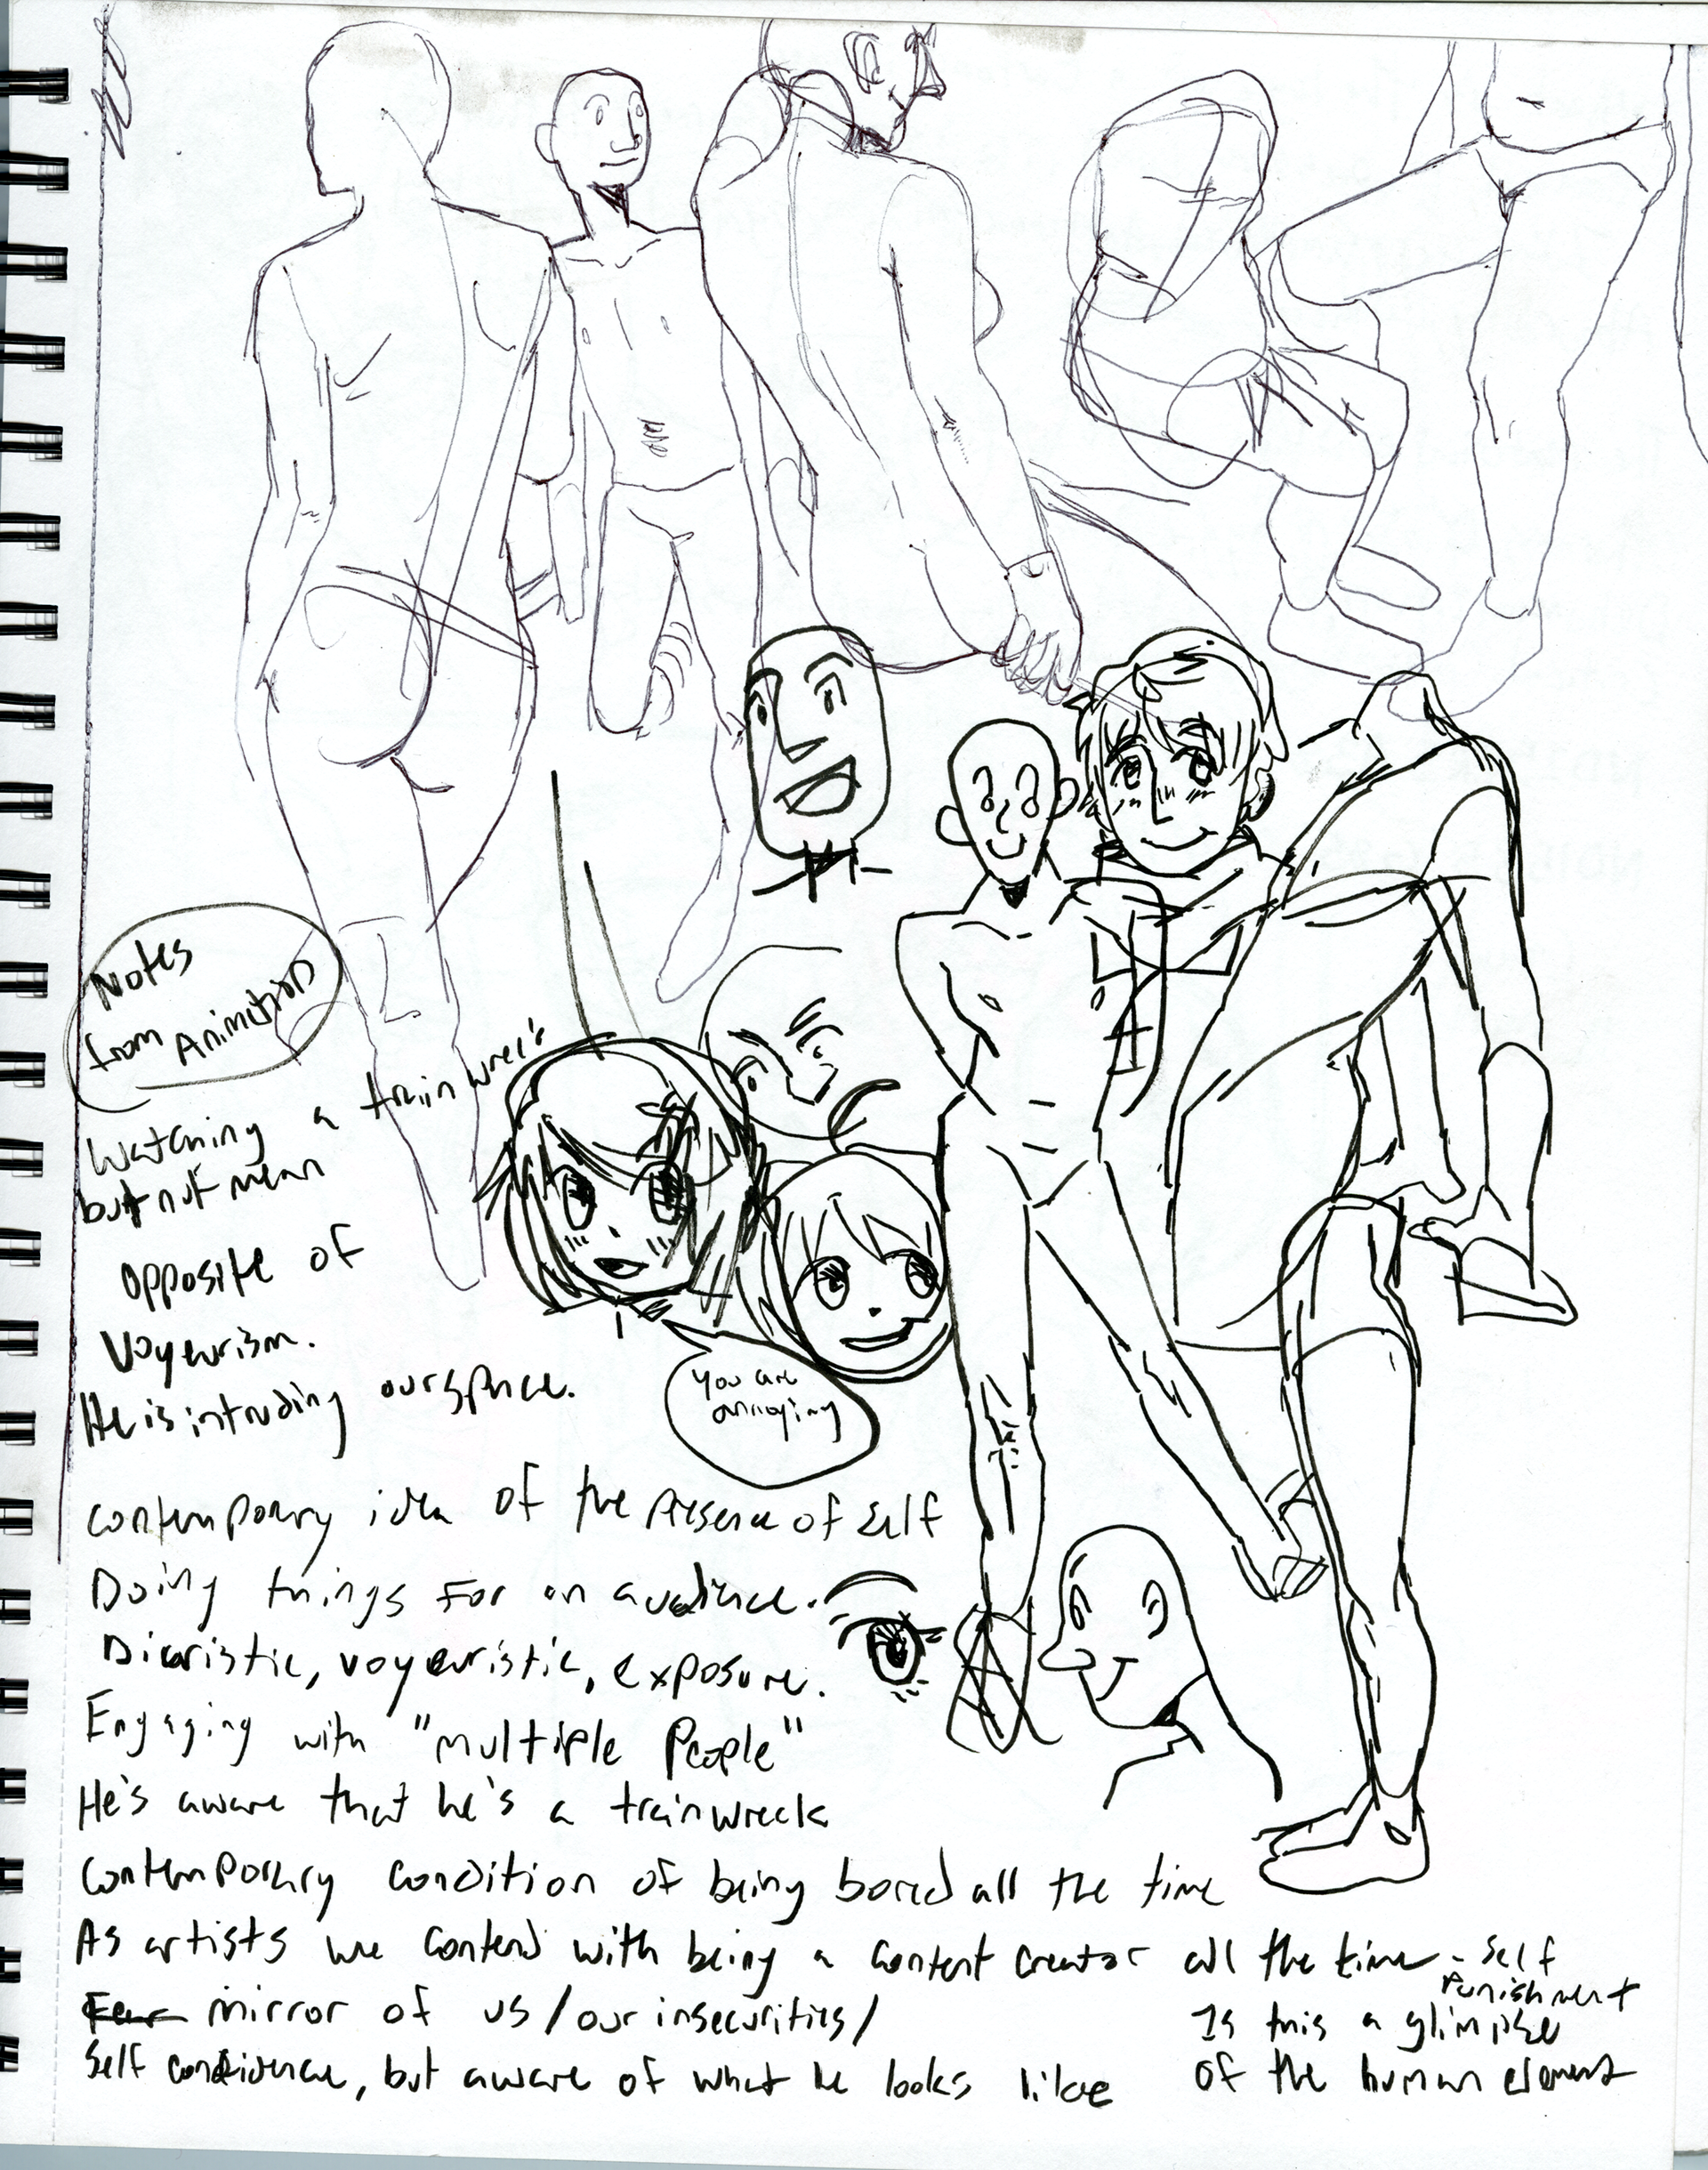 Notes
from Animation
Watching a train wreck
but not mean
opposite of
Voyeurism.
He is intruding our space.
You are
annoying
contemporary idea of the Presence of Self
Doing things for an audience.
Diaristic, voyeuristic, exposure.
Engaging with "multiple People"
He's aware that he's a trainwreck
contemporary condition of being bored all the time
As artists we contend with being a content creator all the time - Self
Punishment
Fear mirror of us/our insecurities/
Self confidence, but aware of what he looks like
Is this a glimpse
of the human element